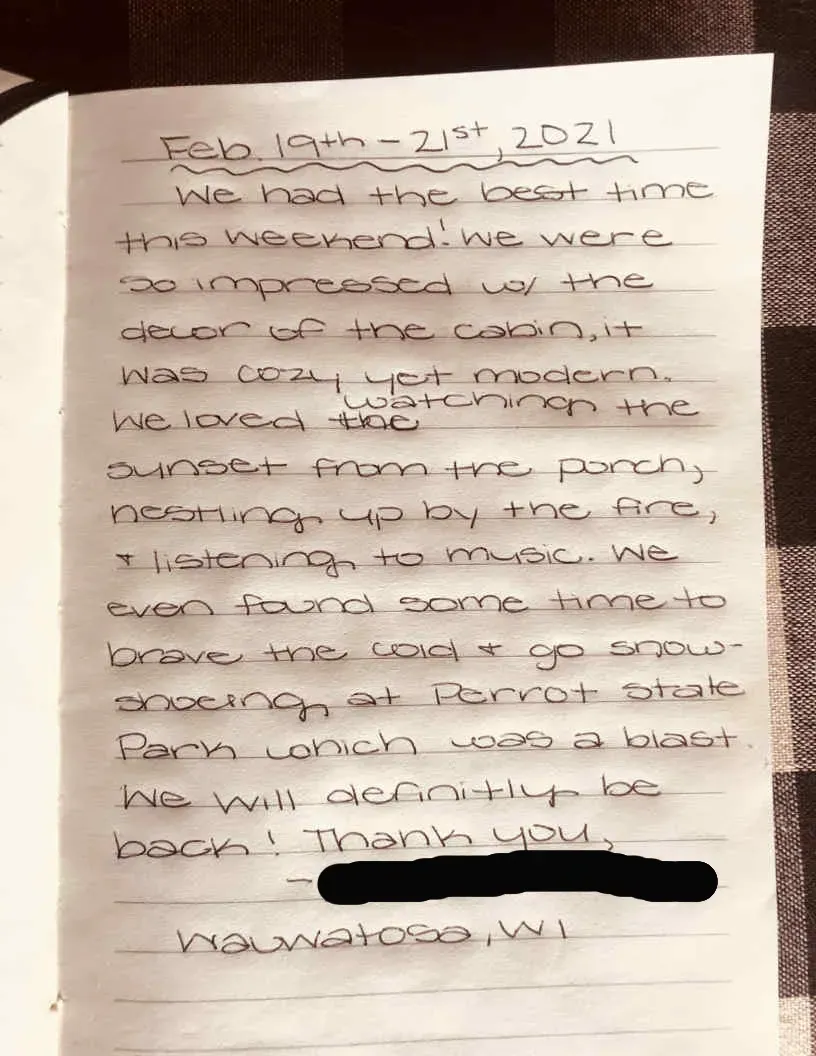 Feb. 19th - 21st, 2021
We had the best time
this weekend! We were
so impressed w/ the
decor of the cabin, it
was cozy yet modern.
We loved the watching the
sunset from the porch,
nestling up by the fire,
+ listening to music. We
even found some time to
brave the cold + go snow-
shoeing at Perrot State
Park which was a blast.
We will definitly be
back! Thank you,
-
Wauwatosa, WI